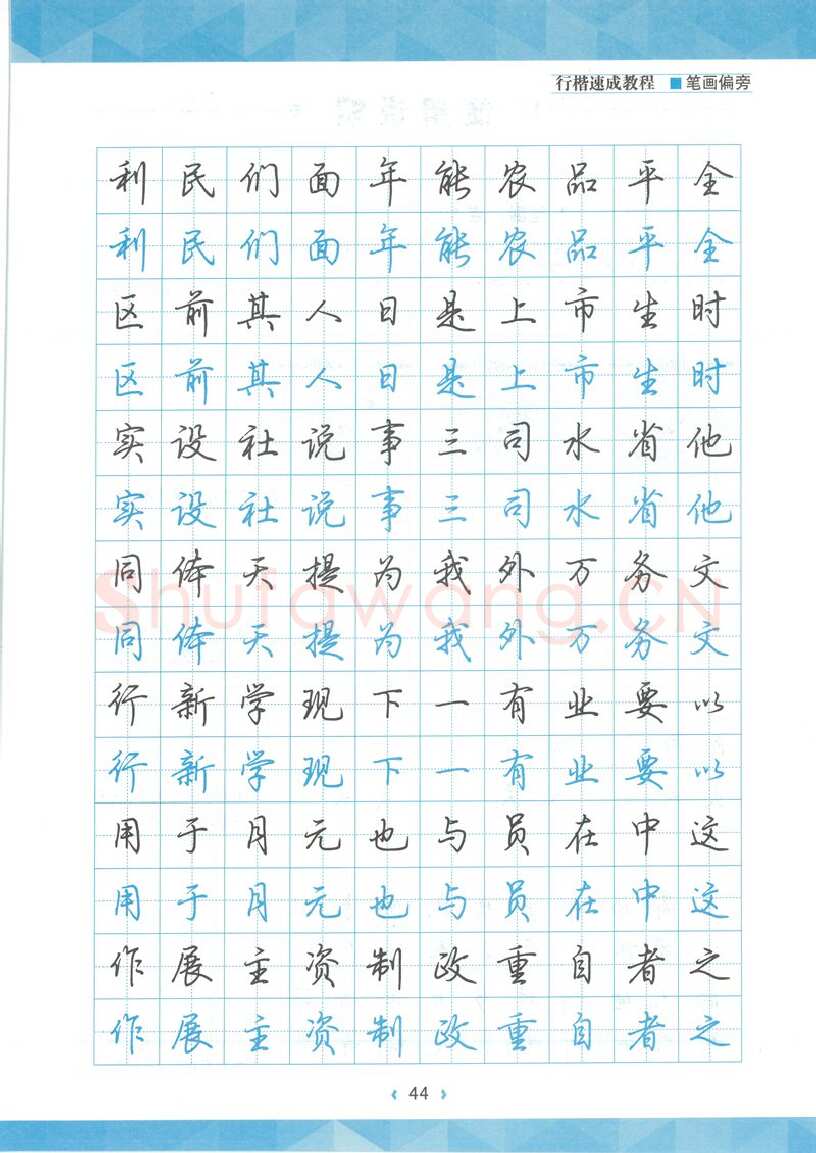 行楷速成教程 ■ 笔画偏旁
利民们面年能农品平全
利民们面年能农品平全
区前其人日是上市生时
区前其人日是上市生时
实设社说事三司水省他
实设社说事三司水省他
同体天提为我外万务文
同体天提为我外万务文
Shufawang.CN
行新学现下一有业要以
行新学现下一有业要以
用于月元也与员在中这
用于月元也与员在中这
作展主资制政重自者之
作展主资制政重自者之
‹ 44 ›